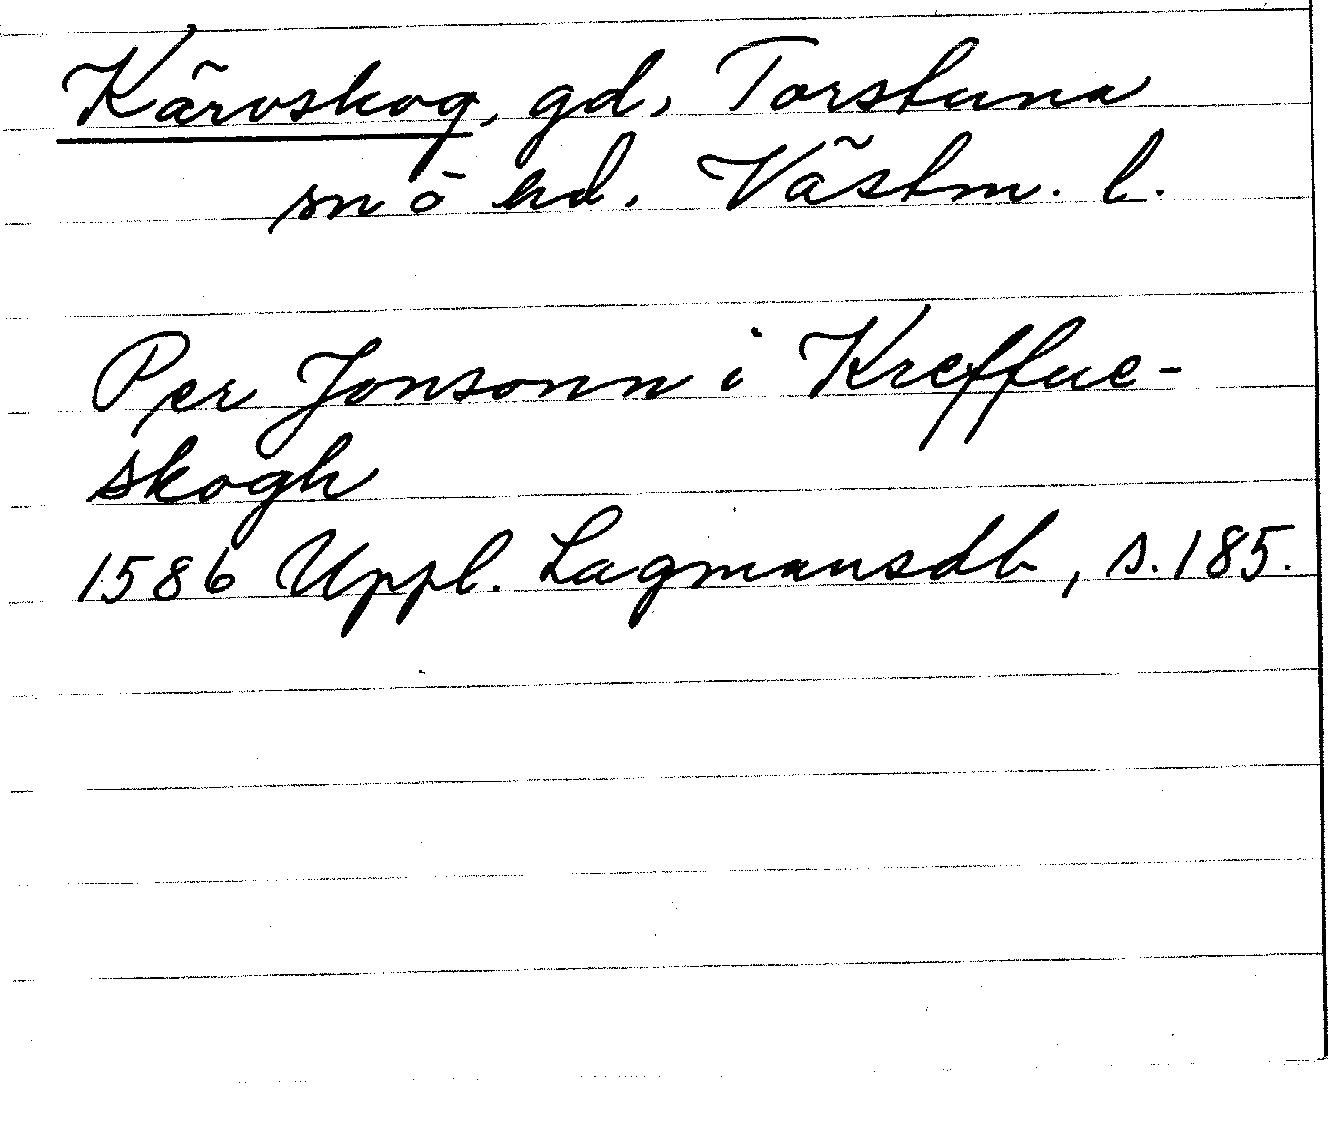 Kärvskog, gd, Torstuna
sn ō hd. Västm. l.
Per Jonsonn i Kreffue-
skogh
1586 Uppl. Lagmansdb, s. 185.